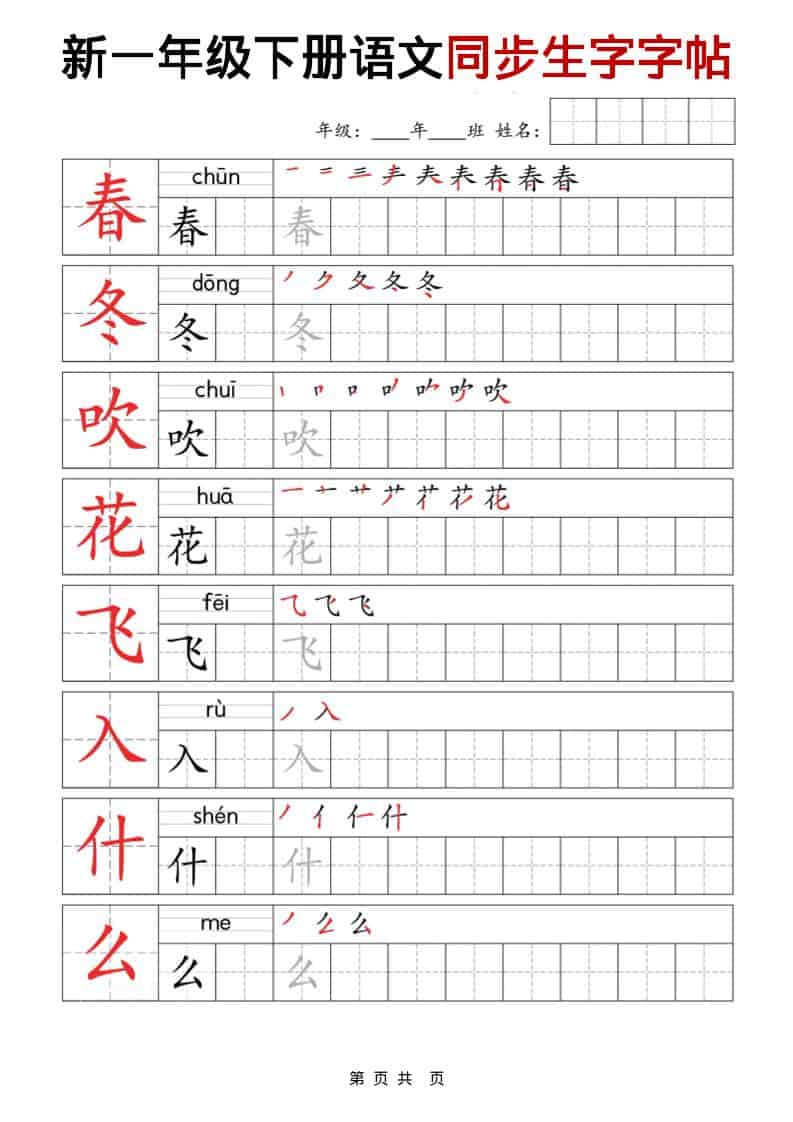 新一年级下册语文同步生字字帖
年级：____年____班 姓名：
春 chūn 一 二 三 声 夫 表 春 春 春
春 春
冬 dōng 丿 ク 夂 冬 冬
冬 冬
吹 chuī 丨 口 口 吖 吹 吹 吹
吹 吹
花 huā 一 十 艹 艹 芢 花 花
花 花
飞 fēi ⺄ 飞 飞
飞 飞
入 rù 丿 入
入 入
什 shén 丿 亻 仁 什
什 什
么 me 丿 么 么
么 么
第 页 共 页